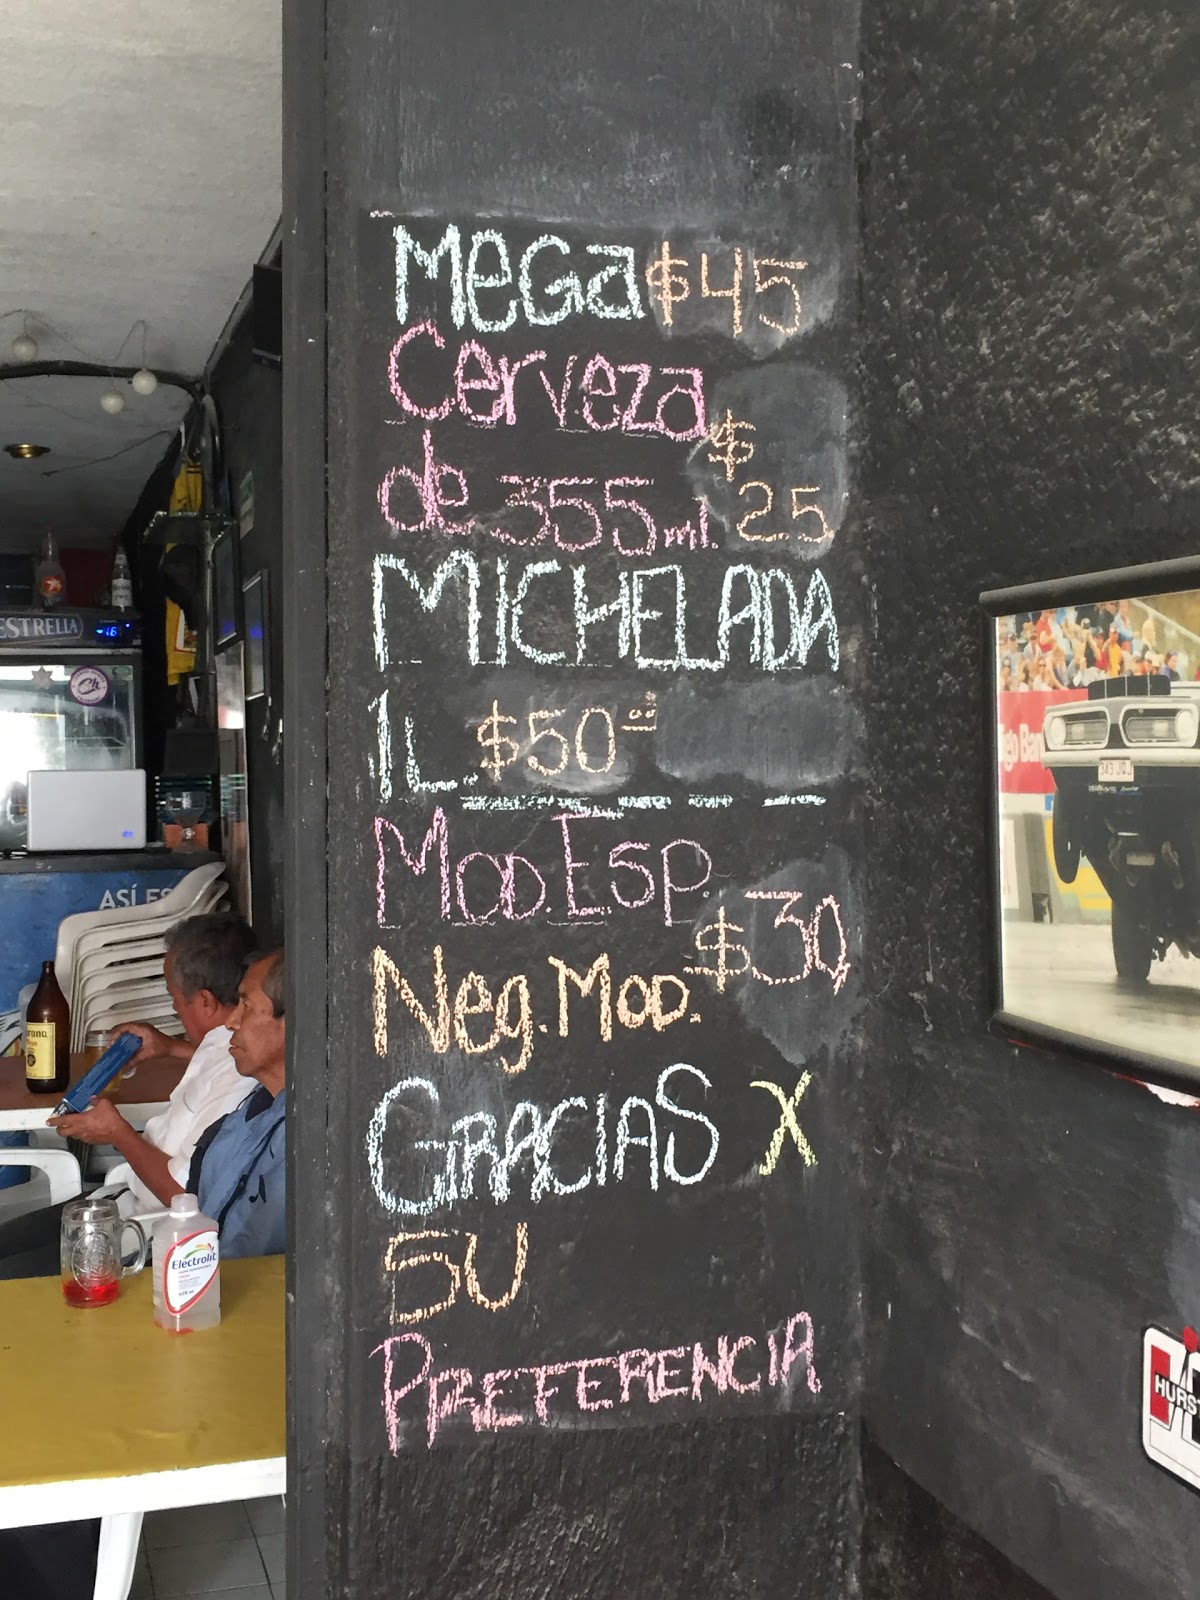 MeGa $45
Cerveza
de 355 ml. $ 25
MICHELADA
1L. $50.00
Mod. Esp.
$30
Neg. Mod.
GRACIAS X
SU
PREFERENCIA
ESTRELLA
-16
ASÍ ES
Electrolit
343 JQJ
HURST